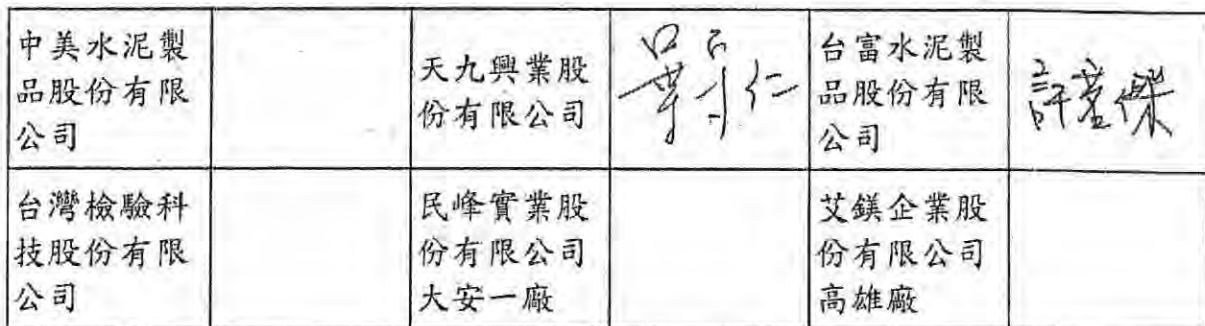 中美水泥製
品股份有限
公司
天九興業股
份有限公司
台富水泥製
品股份有限
公司
台灣檢驗科
技股份有限
公司
民峰實業股
份有限公司
大安一廠
艾鎂企業股
份有限公司
高雄廠